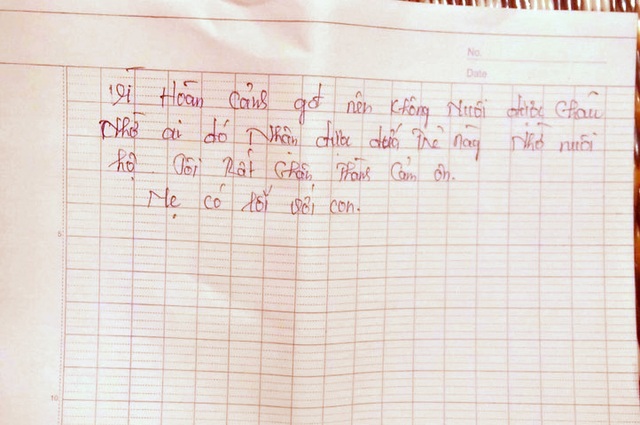 No.
Date
Vì Hoàn Cảnh gđ nên không Nuôi được Cháu
Nhờ ai đó Nhận được đứa Trẻ này Nhờ nuôi
hộ. Tôi Rất Chân Thành Cảm ơn.
Mẹ có lỗi với con.
5
10